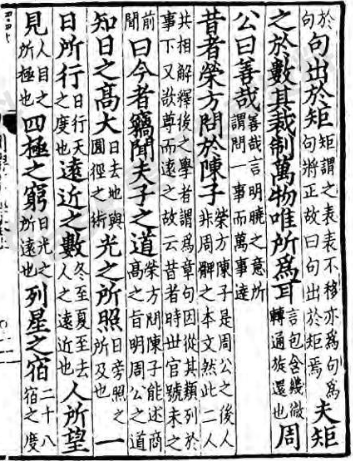 於句句出於矩矩謂之表表不移亦為句為句將正故曰句出於矩焉夫矩
之於數其裁制萬物唯所為耳言包含幾微轉通旋還也周
公曰善哉善哉言明曉之意所謂問一事而萬事達
昔者榮方問於陳子榮方陳子是周公之後人非周髀之本文然此二人
共相解釋後之學者謂為章句因從其類列於事下又欲尊而遠之故云昔者時世官號未之
前聞曰今者竊聞夫子之道榮方問陳子能述商高之旨明周公之道
知日之高大日去地與圓徑之術光之所照日旁照之所及也一
日所行日行天之度也遠近之數冬至夏至去人之遠近也人所望
見人目之所極也四極之窮日光之所遠也列星之宿二十八宿之度